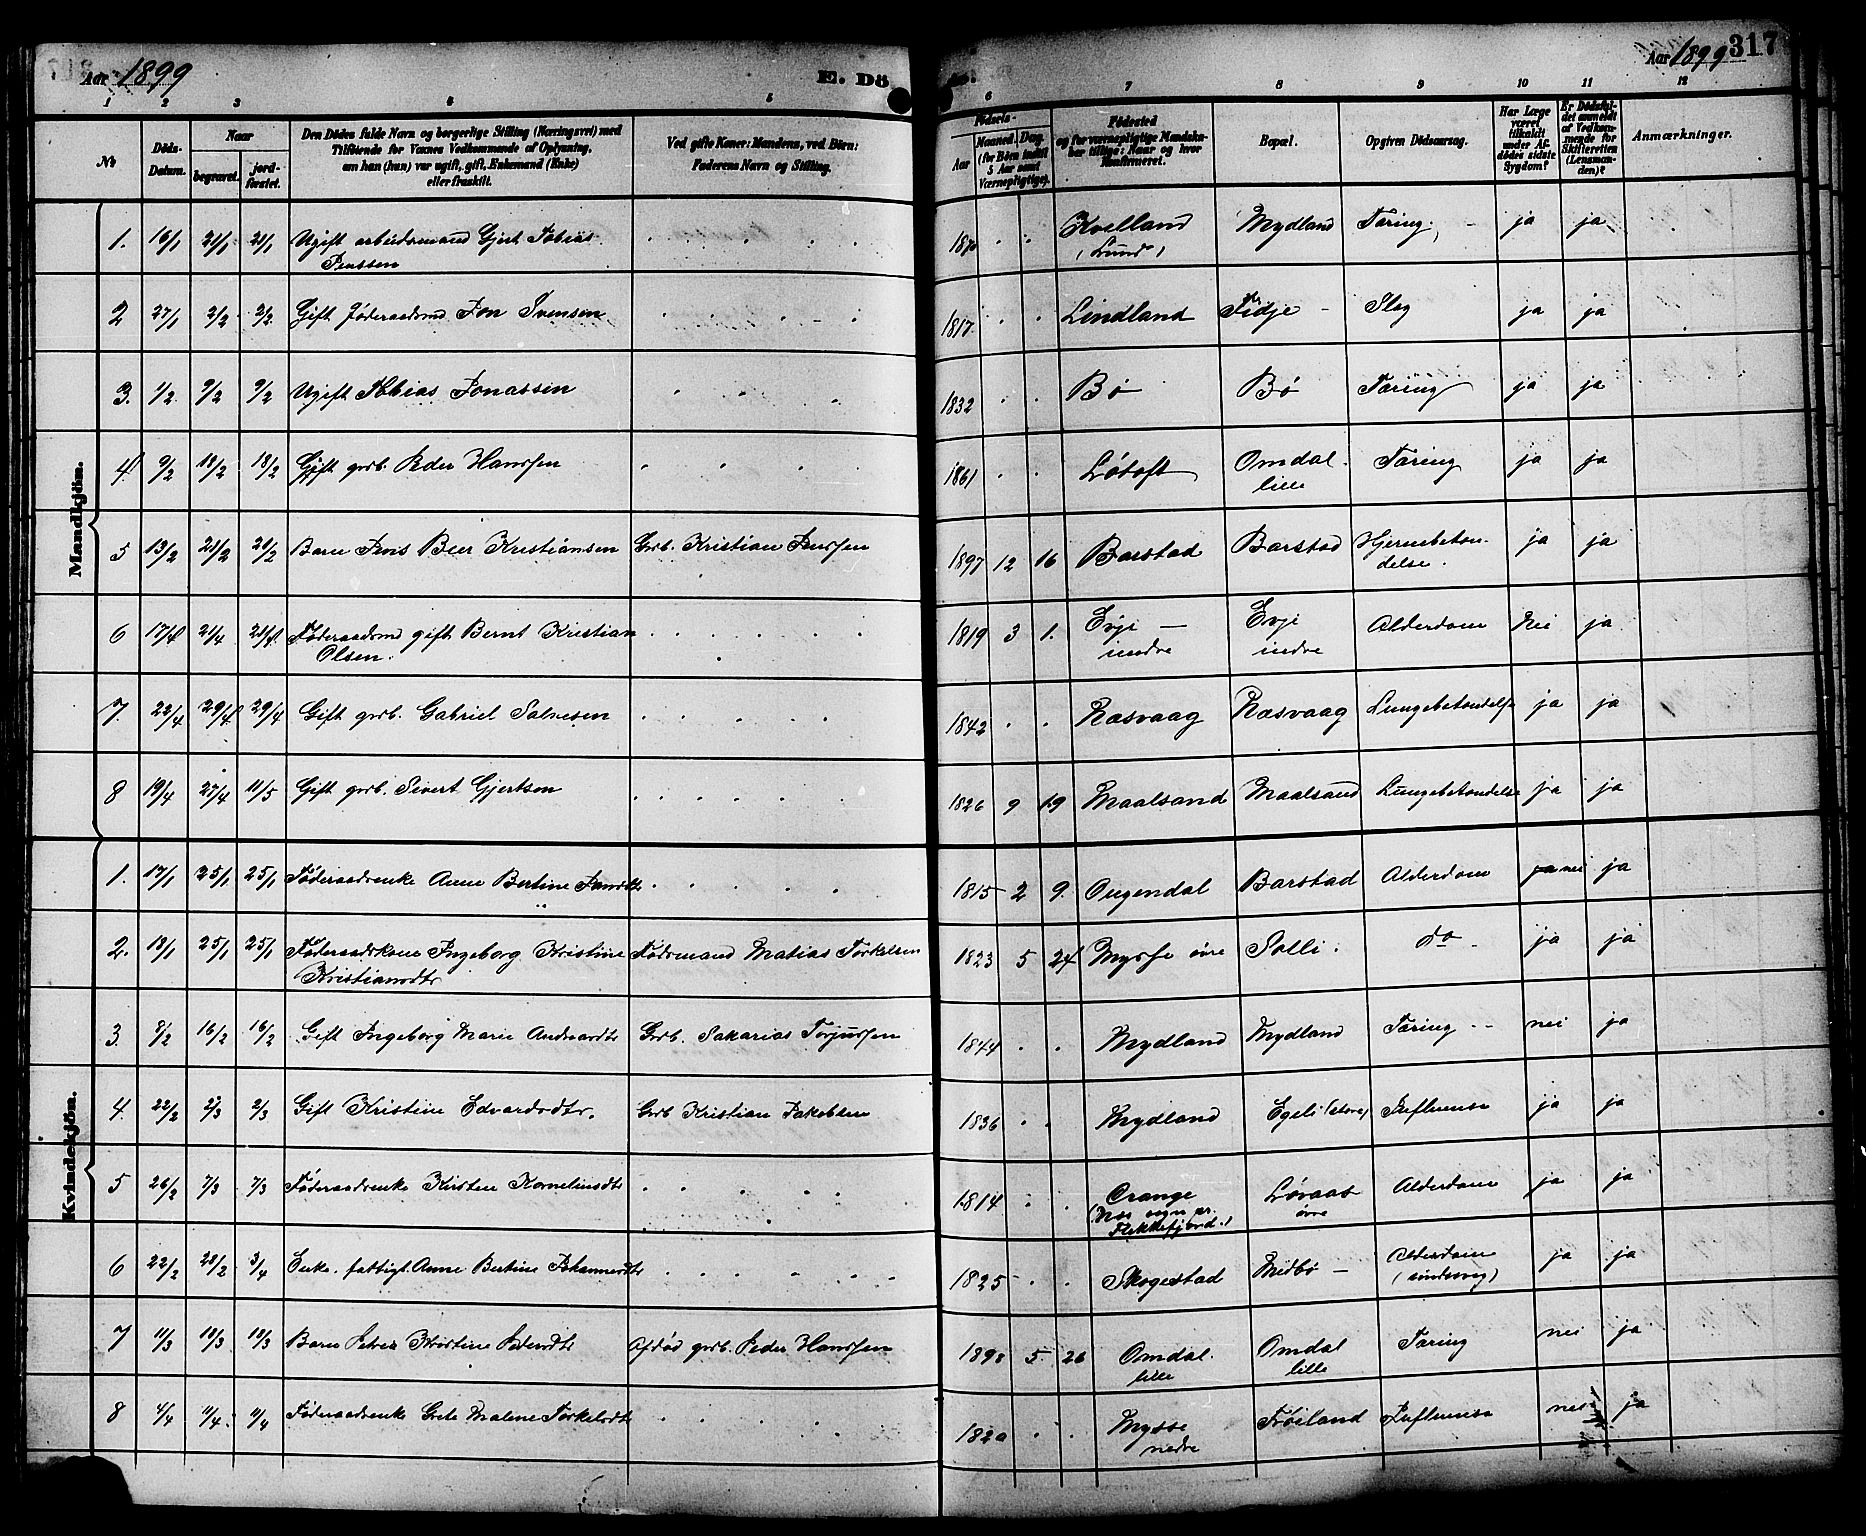 Aar 1899
E. Dö
de.
Aar 1899
317
1 2 3 6 7 8 9 10 11 12
No
Döds-Datum.
Naar
begravet.
jord-fæstet.
Den Dödes fulde Navn og borgerlige Stilling (Næringsvei) med
Tilföiende for Voxnes Vedkommende af Oplysning,
om han (hun) var ugift, gift, Enkemand (Enke)
eller fraskilt.
Ved gifte Koner: Mandens, ved Börn:
Faderens Navn og Stilling.
Födsels-
Aar
Maaned. Dag.
(for Börn indtil
5 Aar samt
Værnepligtige).
Födested
og for værnepligtige Mandska-
ber tillige: Naar og hvor
Konfirmeret.
Bopæl.
Opgiven Dödsaarsag.
Har Læge
været
tilkaldt
under Af-
dödes sidste
Sygdom?
Er Dödsfal-
det anmeldt
af Vedkom-
mende for
Skifteretten
(Lensman-
den)?
Anmærkninger.
Mandkjön.
1. 16/1 21/1 21/1 Ugift arbeidsmand Gjert Tobias 1870 Kvelland Mydland Tæring ja ja
(Lund)
2 27/1 2/2 2/2 Gift Föderaadsmd Jon Svensen 1817 Lindland Fidje Slag ja ja
3. 1/2 9/2 9/2 Ugift Tobias Jonassen 1832 Bö Bö Tæring ja ja
4 9/2 18/2 18/2 Gift grdb. Peder Hanssen 1861 Lötoft Omdal Tæring ja ja
lille
5 13/2 21/2 21/2 Barn Beer Kristiansen Grdb. Kristian Jenssen 1897 12 16 Barstad Barstad Hjernebeten-
delse. ja ja
6 17/4 21/4 21/4 Föderaadsmd gift Bernt Kristian
Olsen. 1819 3 1. Evje indre Evje indre Alderdom Nei ja
7. 22/4 29/4 29/4 Gift grdb. Gabriel Salvesen 1842 Næsvaag Næsvaag Lungebetændelse ja ja
8 19/4 27/4 11/5 Gift grdb. Sivert Gjertsen 1826 9 19 Maalsand Maalsand Lungebetændelse ja ja
Kvindekjön.
1. 17/1 25/1 25/1 Föderaadsenke Anne Bertine 1815 2 9. Ougendal Barstad Alderdom nei ja
2. 18/1 25/1 25/1 Föderaadskone Ingeborg Kristine
Kristiansdtr Födrmand Matias Torkelsen 1823 5 24 Mysse övre Solli. do ja ja
3. 8/2 16/2 16/2 Gift Ingeborg Marie Andreasdtr Grdb. Sakarias Torjussen 1844 Mydland Mydland Tæring nei ja
4. 22/2 2/3 2/3 Gift Kristine Edvardsdtr. Grdb Kristian Jakobsen 1836 Mydland Egeli (store) Influensa ja ja
5 26/2 7/3 7/3 Föderaadsenke Kirsten Korneliusdtr 1814 Orange
(Nes sogn pr.
Flekkefjord.) Lövaas
övre Alderdom ja ja
6 22/2 28/2 3/4 Enke. fattigl. Anne Bertine Johannesdtr 1825 Skogestad Midbö Alderdom
(sindssvag) ja ja
7 11/3 18/3 18/3 Barn Petra Kristine Pedersdtr Afdöd grdb. Peder Hanssen 1898 5 26 Omdal.
lille Omdal
lille Tæring nei ja
8 4/4 11/4 11/4 Föderaadsenke Grete Malene Torkelsdtr 1820 Mysse
nedre Fröiland Influensa nei ja